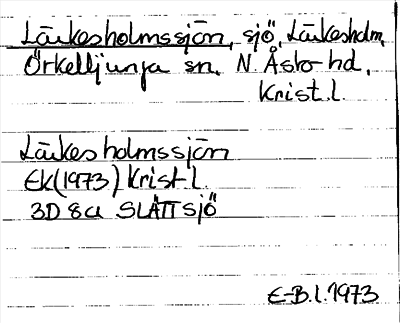 Lärkesholmssjön, sjö, Lärkesholm,
Örkelljunga sn. N. Åsbo hd.
Krist. l.
Lärkesholmssjön
EK (1973) Krist l.
3D 8a SLÄTTSJÖ
E-B. l. 1973